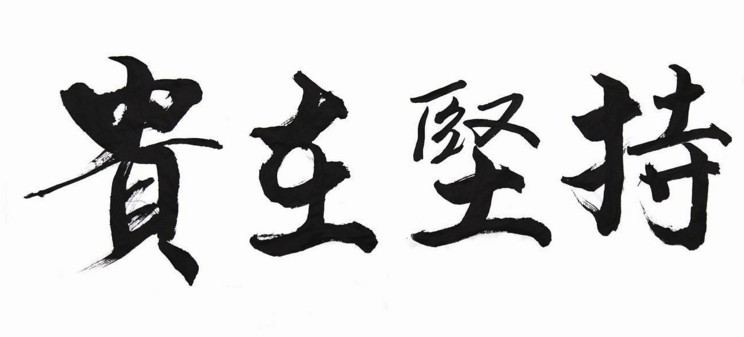 貴在堅持